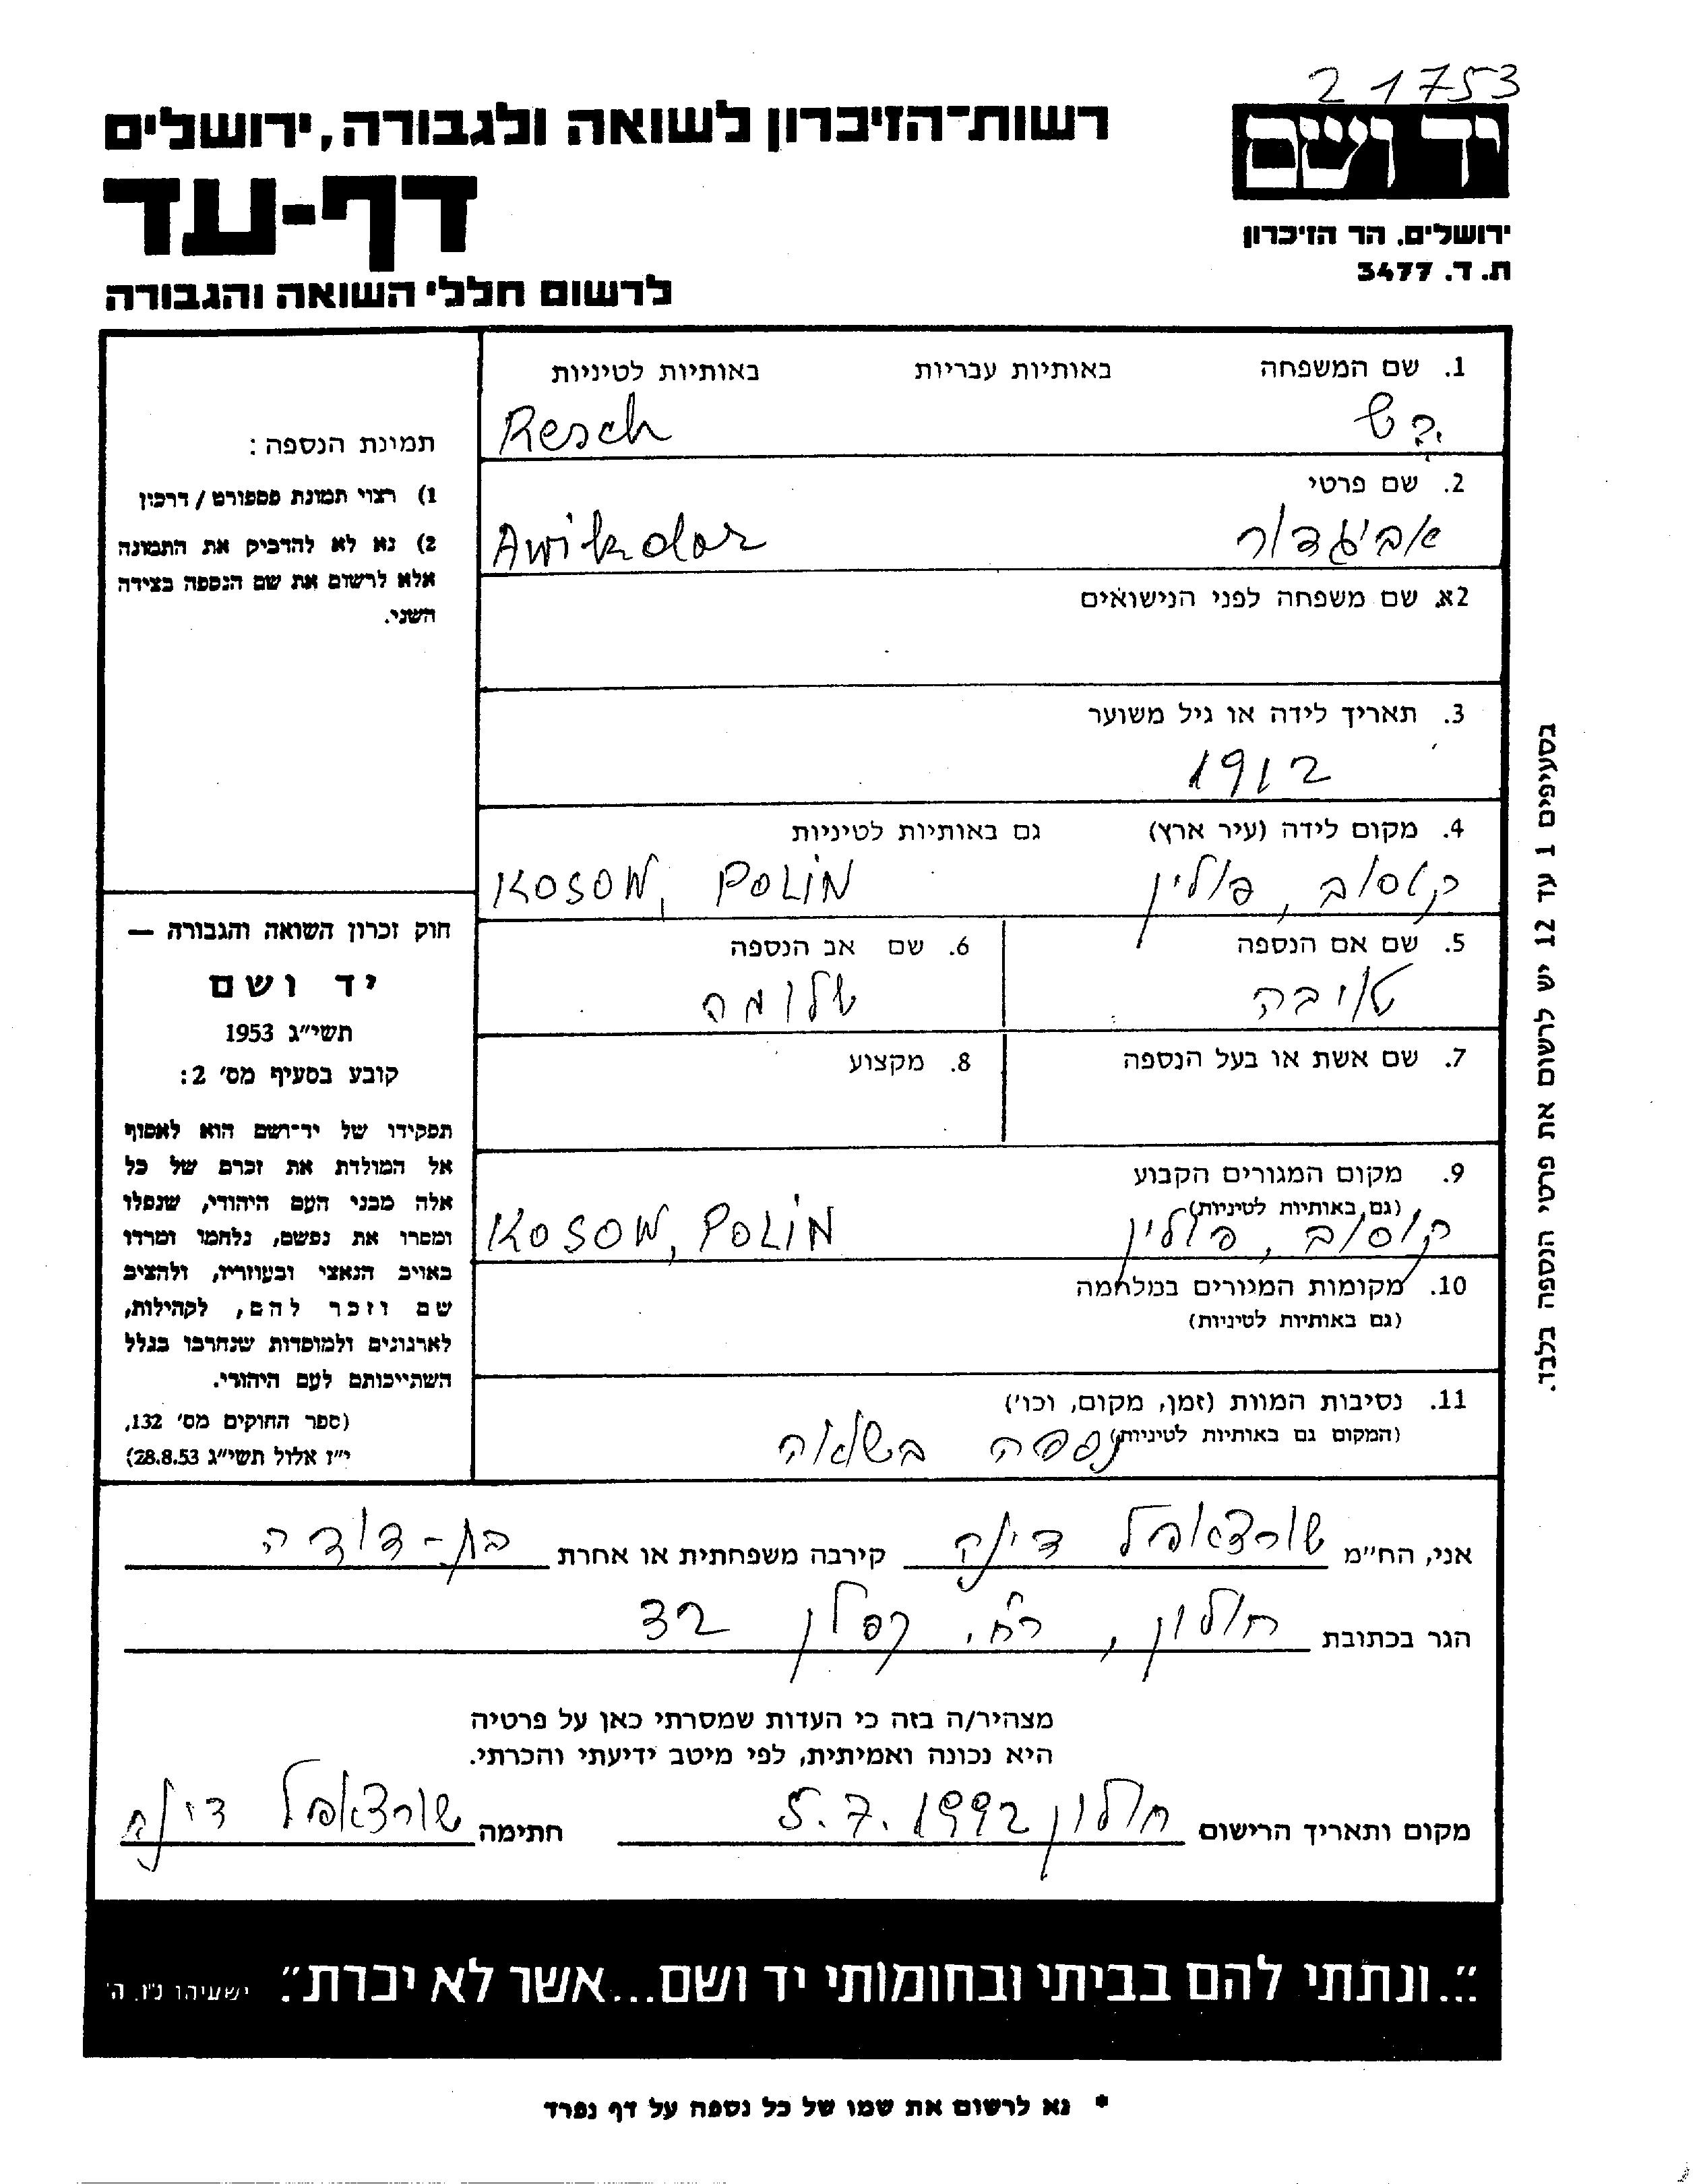 21753
יד ושם
ירושלים. הר הזיכרון
ת. ד. 3477
רשות־הזיכרון לשואה ולגבורה, ירושלים
דף-עד
לרשום חללי השואה והגבורה
1. שם המשפחה באותיות עבריות באותיות לטיניות
רש Resch
2. שם פרטי
אביגדור Awikdor
2א. שם משפחה לפני הנישואים
3. תאריך לידה או גיל משוער
1912
4. מקום לידה (עיר ארץ) גם באותיות לטיניות
קוסוב, פולין KOSOW, POLIN
5. שם אם הנספה 6. שם אב הנספה
טויבה שלומה
7. שם אשת או בעל הנספה 8. מקצוע
9. מקום המגורים הקבוע
(גם באותיות לטיניות)
קוסוב, פולין KOSOW, POLIN
10. מקומות המגורים במלחמה
(גם באותיות לטיניות)
11. נסיבות המוות (זמן, מקום, וכו')
(המקום גם באותיות לטיניות)
נספה בשואה
תמונת הנספה:
1) רצוי תמונת פספורט / דרכון
2) נא לא להדביק את התמונה
אלא לרשום את שם הנספה בצידה
השני.
חוק זכרון השואה והגבורה —
יד ושם
תשי"ג 1953
קובע בסעיף מס' 2:
תפקידו של יד־ושם הוא לאסוף
אל המולדת את זכרם של כל
אלה מבני העם היהודי, שנפלו
ומסרו את נפשם, נלחמו ומרדו
באויב הנאצי ובעוזריו, ולהציב
שם וזכר להם, לקהילות,
לארגונים ולמוסדות שנחרבו בגלל
השתייכותם לעם היהודי.
(ספר החוקים מס' 132,
י"ז אלול תשי"ג 28.8.53)
בסעיפים 1 עד 12 יש לרשום את פרטי הנספה בלבד.
אני, הח"מ שורצאפל דינה קירבה משפחתית או אחרת בת-דודה
הגר בכתובת חולון, רח. קפלן 32
מצהיר/ה בזה כי העדות שמסרתי כאן על פרטיה
היא נכונה ואמיתית, לפי מיטב ידיעתי והכרתי.
מקום ותאריך הרישום חולון 5.7.1992 חתימה שורצאפל דינה
"...ונתתי להם בביתי ובחומותי יד ושם...אשר לא יכרת". ישעיהו נ"ו. ה'
* נא לרשום את שמו של כל נספה על דף נפרד